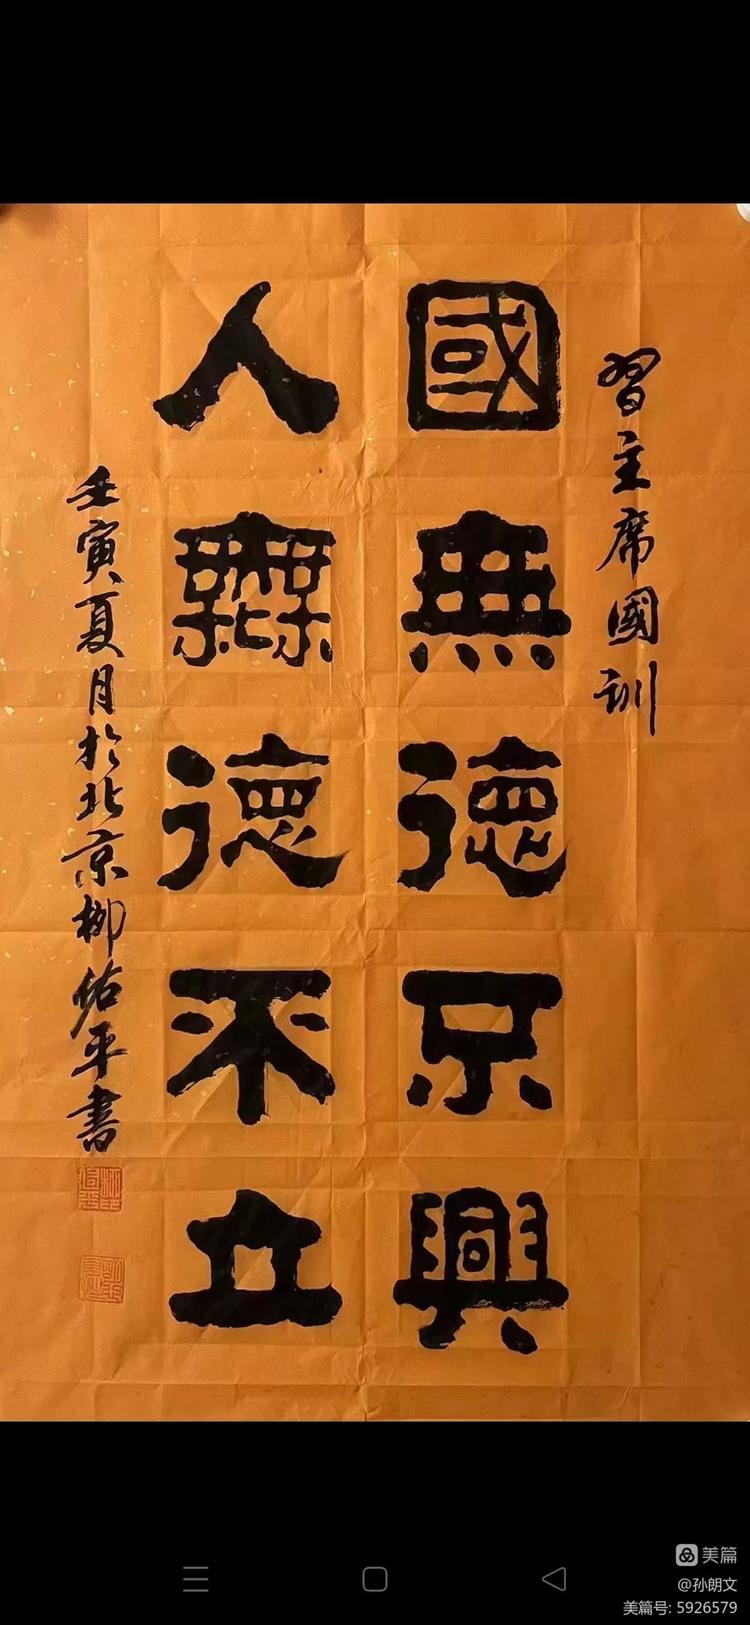 習主席國訓
國無德不興
人無德不立
壬寅夏月於北京柳佑平書
美篇
@孙朗文
美篇号: 5926579